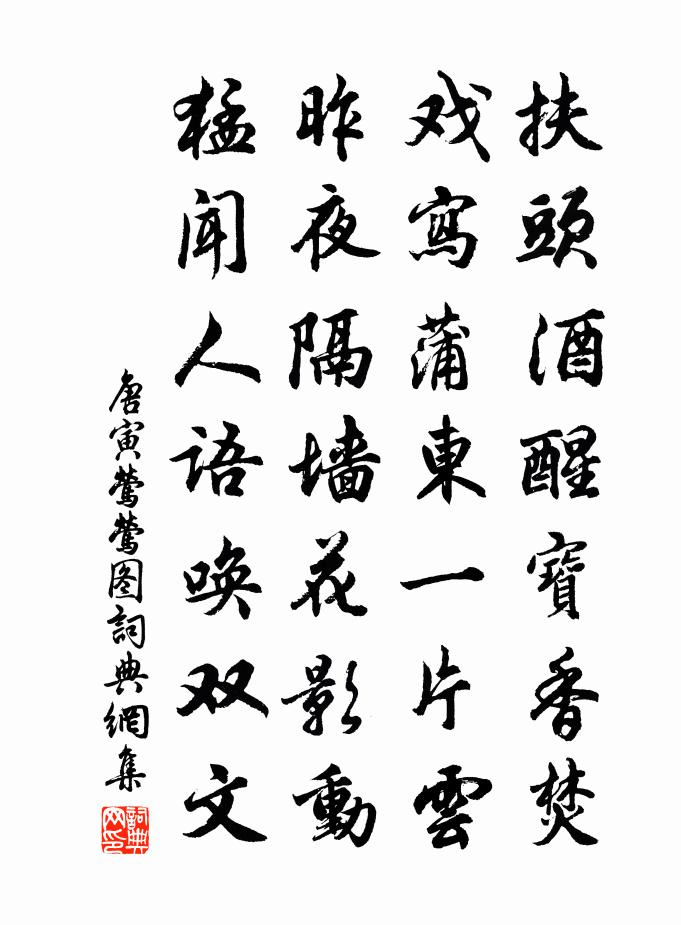 扶頭酒醒寶香焚
戏寫蒲東一片雲
昨夜隔墙花影動
猛闻人语唤双文
唐寅莺莺图詞典網集
詞典网印